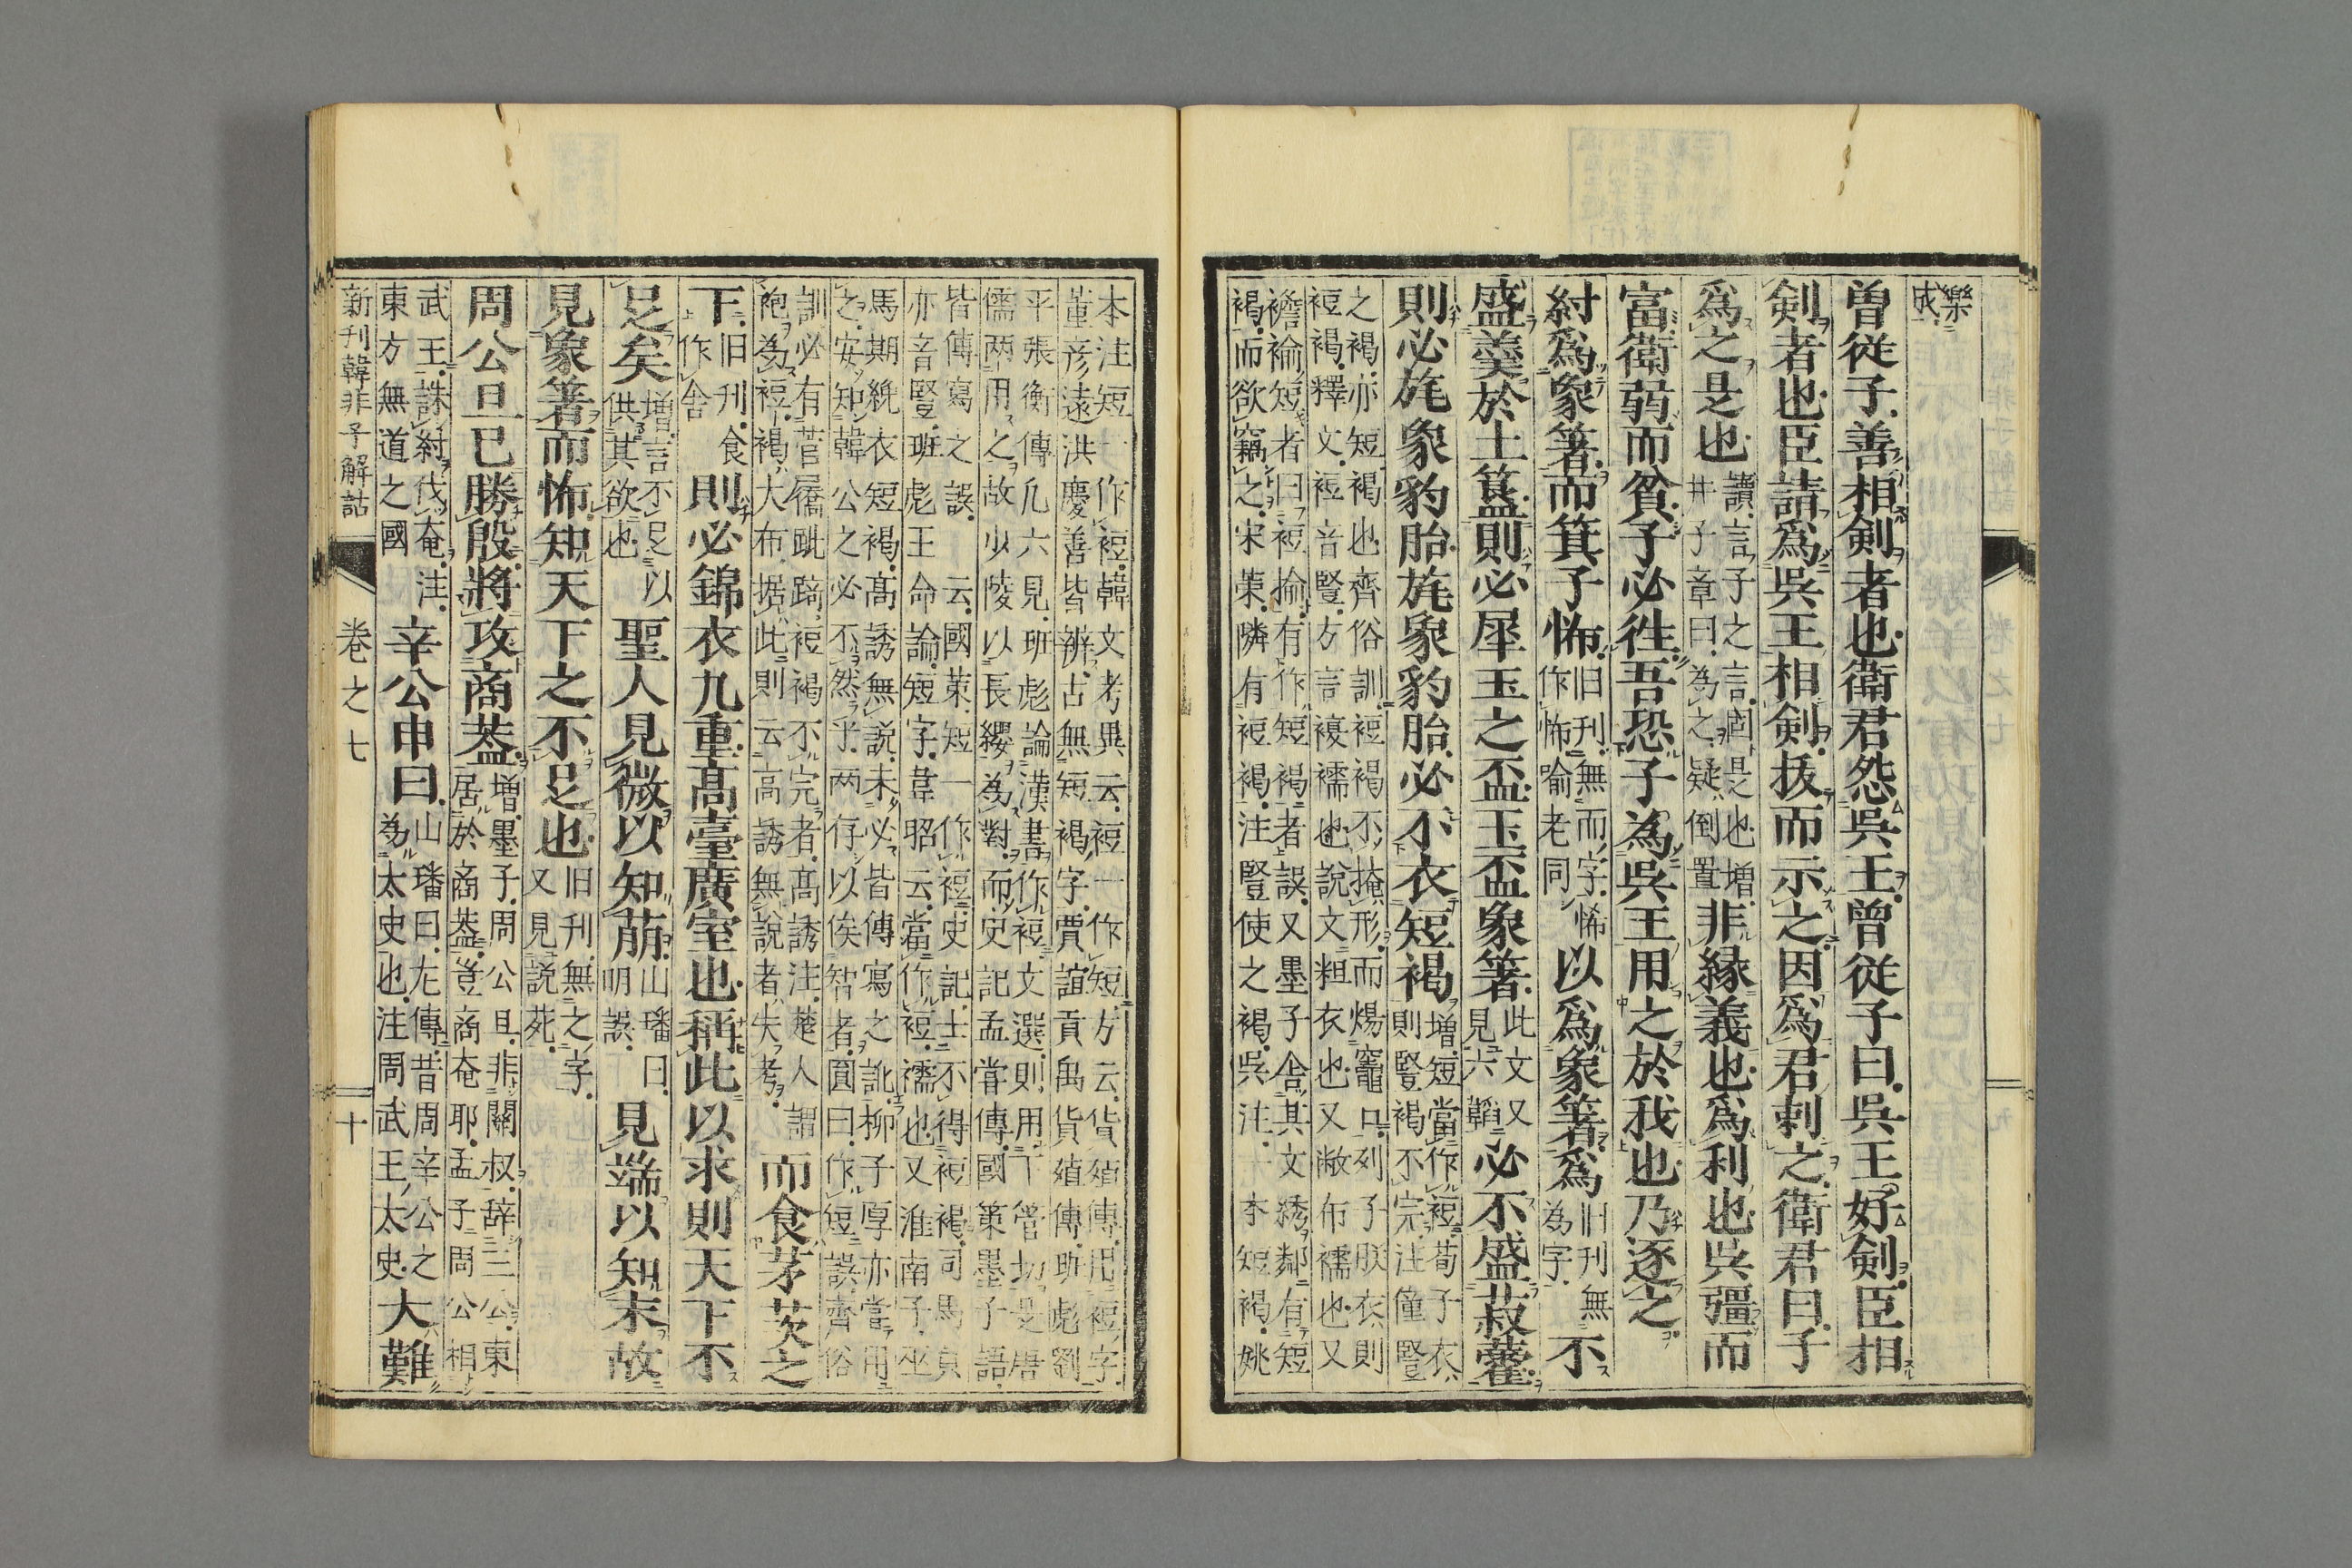 樂
成
曽從子善相剣者也衛君怨呉王曽從子曰呉王好剣臣相
剣者也臣請爲呉王相剣抜而示之因爲君刺之衛君曰子
爲之是也
讀言子之言固是也増
井子章曰為之疑倒置
非緣義也爲利也呉彊而
富衛弱而貧子必徃吾恐子為呉王用之於我也乃逐之
紂爲象箸而箕子怖
旧刊無而字怖
作怖喻老同
以爲象箸爲
旧刊無
為字
不
盛羹於土簋則必犀玉之盃玉盃象箸
此文又
見六韜
必不盛菽藿
則必旄象豹胎旄象豹胎必不衣短褐
増短當作裋荀子衣
則豎褐不完注僮豎
之褐亦短褐也齊俗訓裋褐不掩形而煬竈口列子朕衣則
裋褐釋文裋音豎方言複襦也說文粗衣也又敝布襦也又
襜褕短者曰裋揄有作短褐者誤又墨子舎其文綉鄰有短
褐而欲竊之宋策隣有裋褐注豎使之褐呉注一李短褐姚
本注短一作裋韓文考異云裋一作短方云貨殖傳用裋字
董彦遠洪慶善皆辨古無短褐字賈誼貢禹貨殖傳班彪劉
平張衡傳凡六見班彪論漢書作裋文選則用丁管切是唐
儒两用之故少陵以長纓為對而史記孟甞傳國策墨子語
皆傳寫之誤云國策短一作裋史記士不得裋褐司馬貞
亦音豎班彪王命論短字韋昭云當作裋襦也又淮南子巫
馬期絻衣短褐高誘無説未必皆傳寫之訛柳子厚亦當用
之安知韓公之必不然乎两存以俟智者圓曰作短誤齊俗
訓必有菅屩跐踦裋褐不完者高誘注楚人謂
袍為裋褐大布据此則云高誘無說者失考
而食茅茨之
下
旧刊食
作舎
則必錦衣九重高臺廣室也稱此以求則天下不
足矣
増言不足以
供其欲也
聖人見微以知萠
山璠曰
明誤
見端以知末故
見象箸而怖知天下之不足也
旧刊無之字
又見説苑
周公旦已勝殷將攻商葢
増墨子周公旦非關叔辞三公東
居於商葢豈商奄耶孟子周公相
武王誅紂伐奄注
東方無道之國
辛公申曰
山璠曰左傳昔周辛公之
為太史也注周武王太史
大難
新刊韓非子解詁
巻之七
十